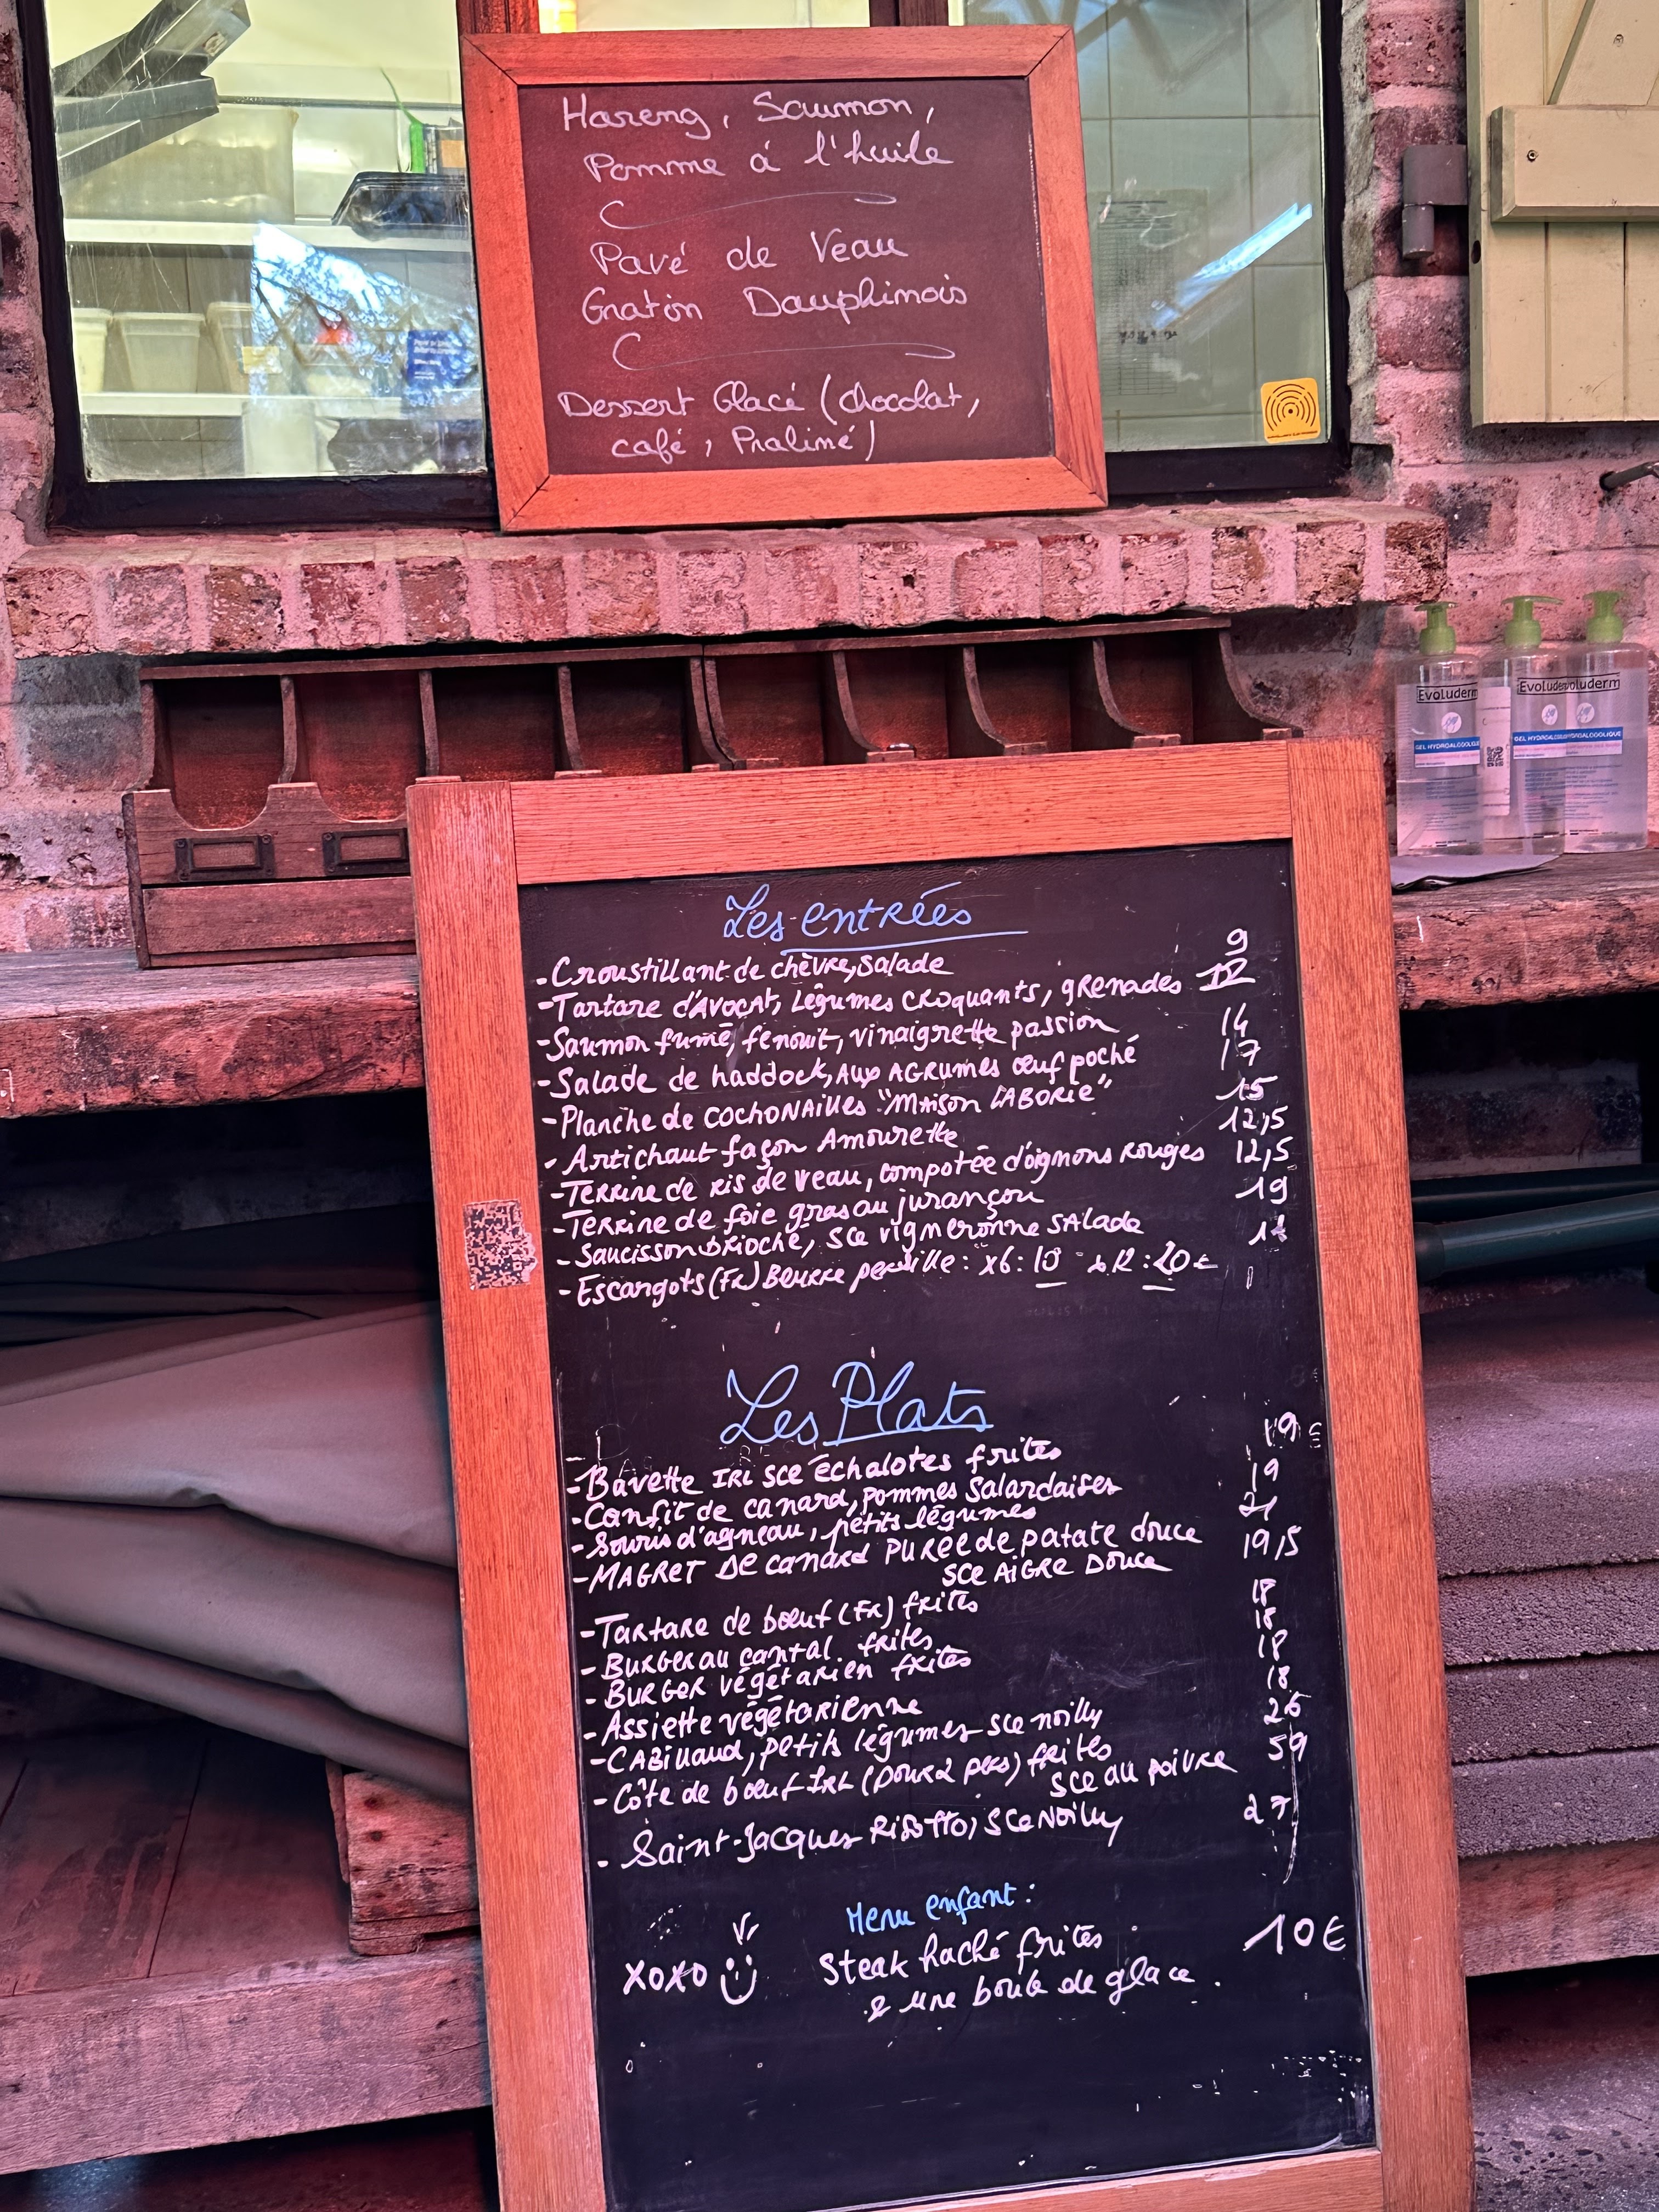 Hareng, Saumon,
Pomme à l'huile
Pavé de Veau
Gratin Dauphinois
Dessert Glacé (chocolat,
café, Praliné)
Evoluderm
Evoluderm
GEL HYDROALCOOLIQUE
GEL HYDROALCOOLIQUE
Les entrées
- Croustillant de chèvre, salade 9
- Tartare d'AVOCAT, Légumes CROquANTS, gRENADES 12
- Saumon fumé, fenouil, vinaigrette passion 14
- Salade de haddock, AUX AGRUMES œuf poché 17
- Planche de COCHONAILLES "MAISON LABORIE" 15
- Artichaut façon Amourette 12,5
- TERRINE DE RIS de veau, compotée d'oignons ROUGES 12,5
- TERRINE de foie gras au jurançon 19
- SAUCISSON BRIOCHÉ, SCE VIGNERONNE SALADE 14
- ESCARGOTS (FR) BEURRE persillé : x6 : 10 x12 : 20€
Les Plats
- Bavette IRL SCE échalotes frites 19 €
- Confit de canard, pommes Salardaises 19
- Souris d'agneau, petits légumes 21
- MAGRET DE CANARD PUREE de patate douce 19,5
SCE AIGRE DOUCE
- TARTARE de bœuf (FR) frites 18
- BURGER au cantal. frites 18
- BURGER végétarien frites 18
- Assiette végétarienne 18
- CABILLAUD, petits légumes sce noilly 26
- Côte de bœuf IRL (pour 2 pers) frites 59
SCE au poivre
- Saint-Jacques RISOTTO, SCE NOILLY 27
Menu enfant :
Steak haché frites 10€
XOXO & une boule de glace.